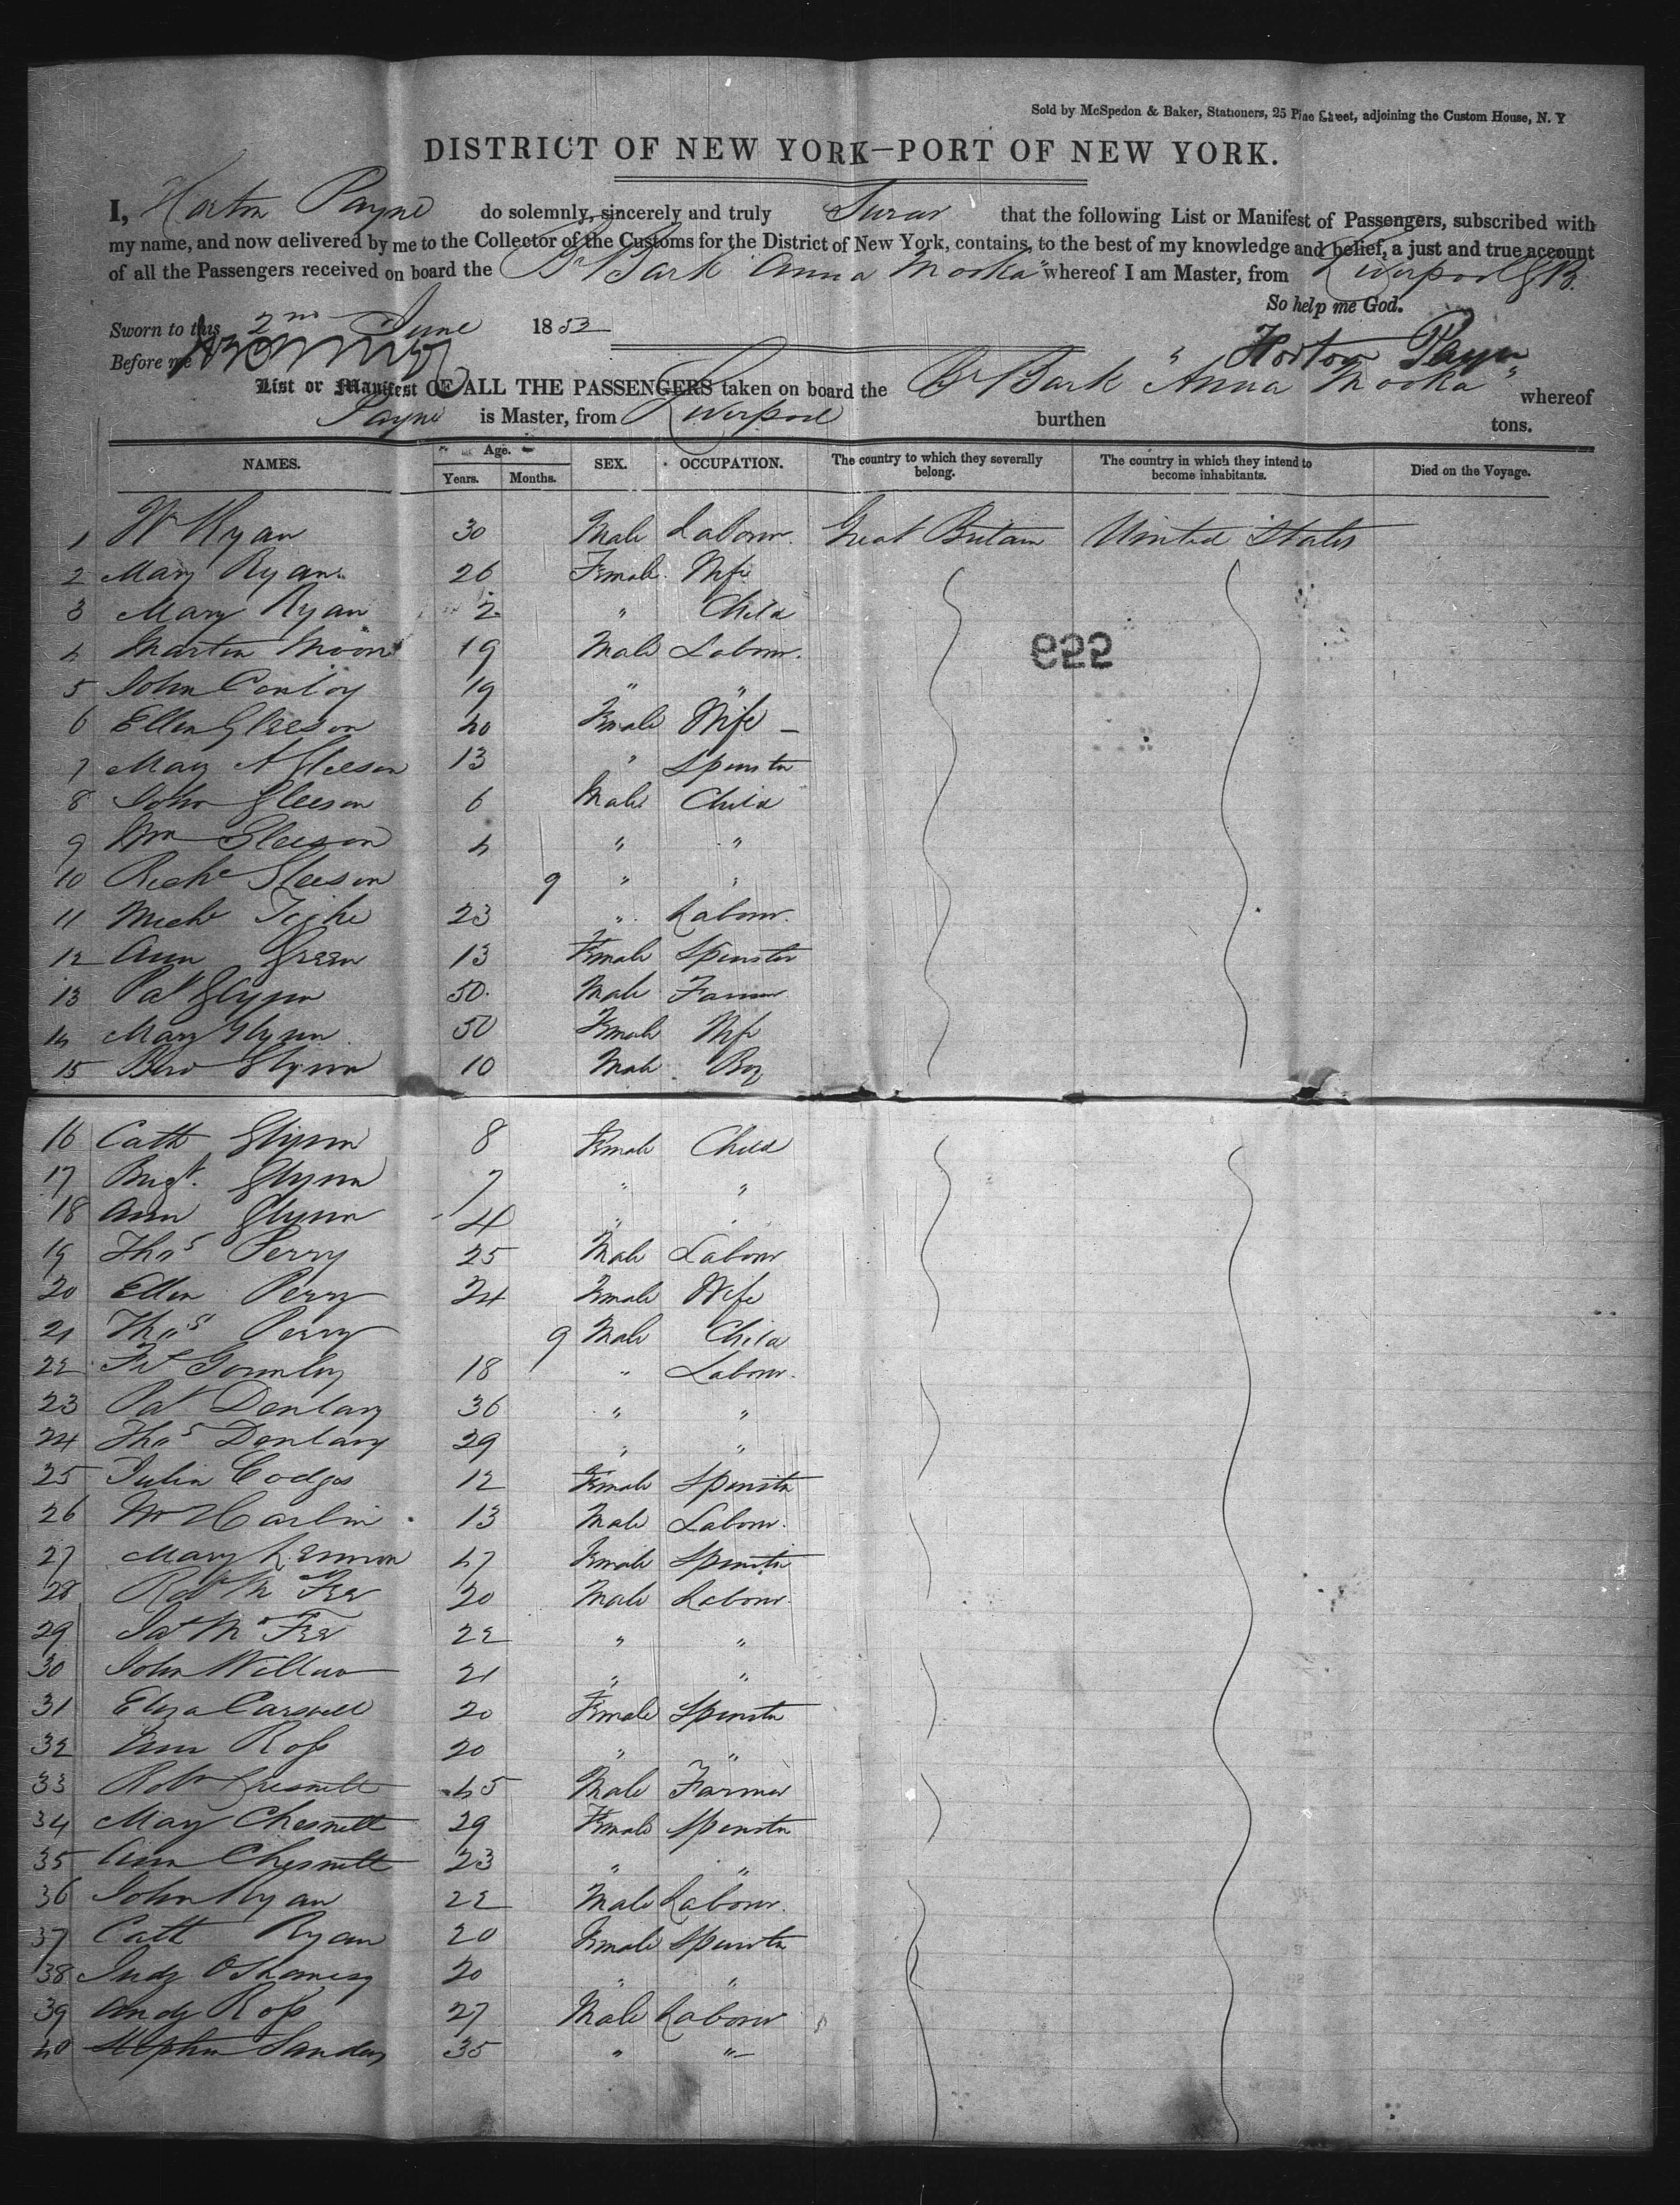 Sold by McSpedon & Baker, Stationers, 25 Pine Street, adjoining the Custom House, N. Y
DISTRICT OF NEW YORK—PORT OF NEW YORK.
I, Horton Payne do solemnly, sincerely and truly Swear that the following List or Manifest of Passengers, subscribed with
my name, and now delivered by me to the Collector of the Customs for the District of New York, contains, to the best of my knowledge and belief, a just and true account
of all the Passengers received on board the Br Bark "Anna Mooka" whereof I am Master, from Liverpool G.B.
So help me God.
Sworn to this 2nd June 1853
Before me
Horton Payne
List or Manifest OF ALL THE PASSENGERS taken on board the Br Bark "Anna Mooka" whereof
Payne is Master, from Liverpool burthen tons.
NAMES. Age. Years. Months. SEX. OCCUPATION. The country to which they severally belong. The country in which they intend to become inhabitants. Died on the Voyage.
1 Wm Ryan 30 Male Labour. Great Britain United States
2 Mary Ryan 26 Female Wife
3 Mary Ryan 2 " Child
4 Martin Moon 19 Male Labour.
922
5 John Conloy 19 " "
6 Ellen Gleeson 40 Female Wife
7 Mary A Gleeson 13 " Spinster
8 John Gleeson 6 Male Child
9 Wm Gleeson 4 " "
10 Richd Gleeson 9 " "
11 Michl Tighe 23 " Labour.
12 Ann Green 13 Female Spinster
13 Pat Glynn 50 Male Farmer
14 Mary Glynn 50 Female Wife
15 Glynn 10 Male Boy
16 Cath Glynn 8 Female Child
17 Brigt. Glynn 7 " "
18 Ann Glynn 4 " "
19 Thos Perry 25 Male Labour
20 Ellen Perry 24 Female Wife
21 Thos Perry 9 Male Child
22 Gormley 18 " Labour.
23 Pat Donlary 36 " "
24 Thos Donlary 29 " "
25 Julia 12 Female Spinster
26 Wm Harlin 13 Male Labour.
27 Mary Lennon 47 Female Spinster
28 Robt Mc Fee 20 Male Labour.
29 Jas Mc Fee 22 " "
30 John 21 " "
31 Eliza Carswell 20 Female Spinster
32 Ann Ross 20 " "
33 Robt Chesnett 45 Male Farmer
34 Mary Chesnett 29 Female Spinster
35 Ann Chesnett 23 " "
36 John Ryan 22 Male Labour.
37 Cath Ryan 20 Female Spinster
38 Judy 20 " "
39 Andy Ross 27 Male Labour
40 Stephen Sanders 35 " "